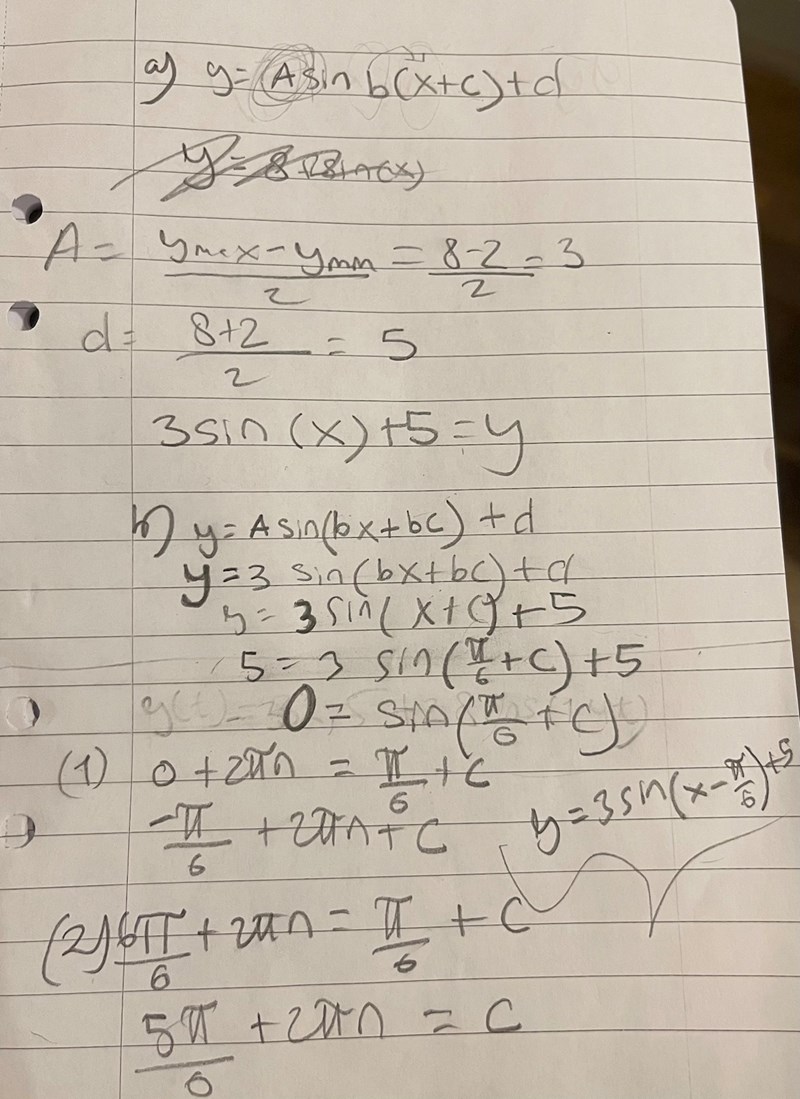 a) y = A sin b(x+c)+d
y = 8+28in(x)
A = (ymax - ymin)/2 = (8-2)/2 = 3
d = (8+2)/2 = 5
3 sin (x) +5 = y
b) y = A sin(bx+bc) + d
y = 3 sin(bx+bc) + d
y = 3 sin( x+c) + 5
5 = 3 sin(π/6 + c) + 5
0 = sin(π/6 + c)
(1) 0 + 2πn = π/6 + c
-π/6 + 2πn + c
y = 3 sin(x - π/6) +5
(2) 6π/6 + 2πn = π/6 + c
5π/6 + 2πn = c